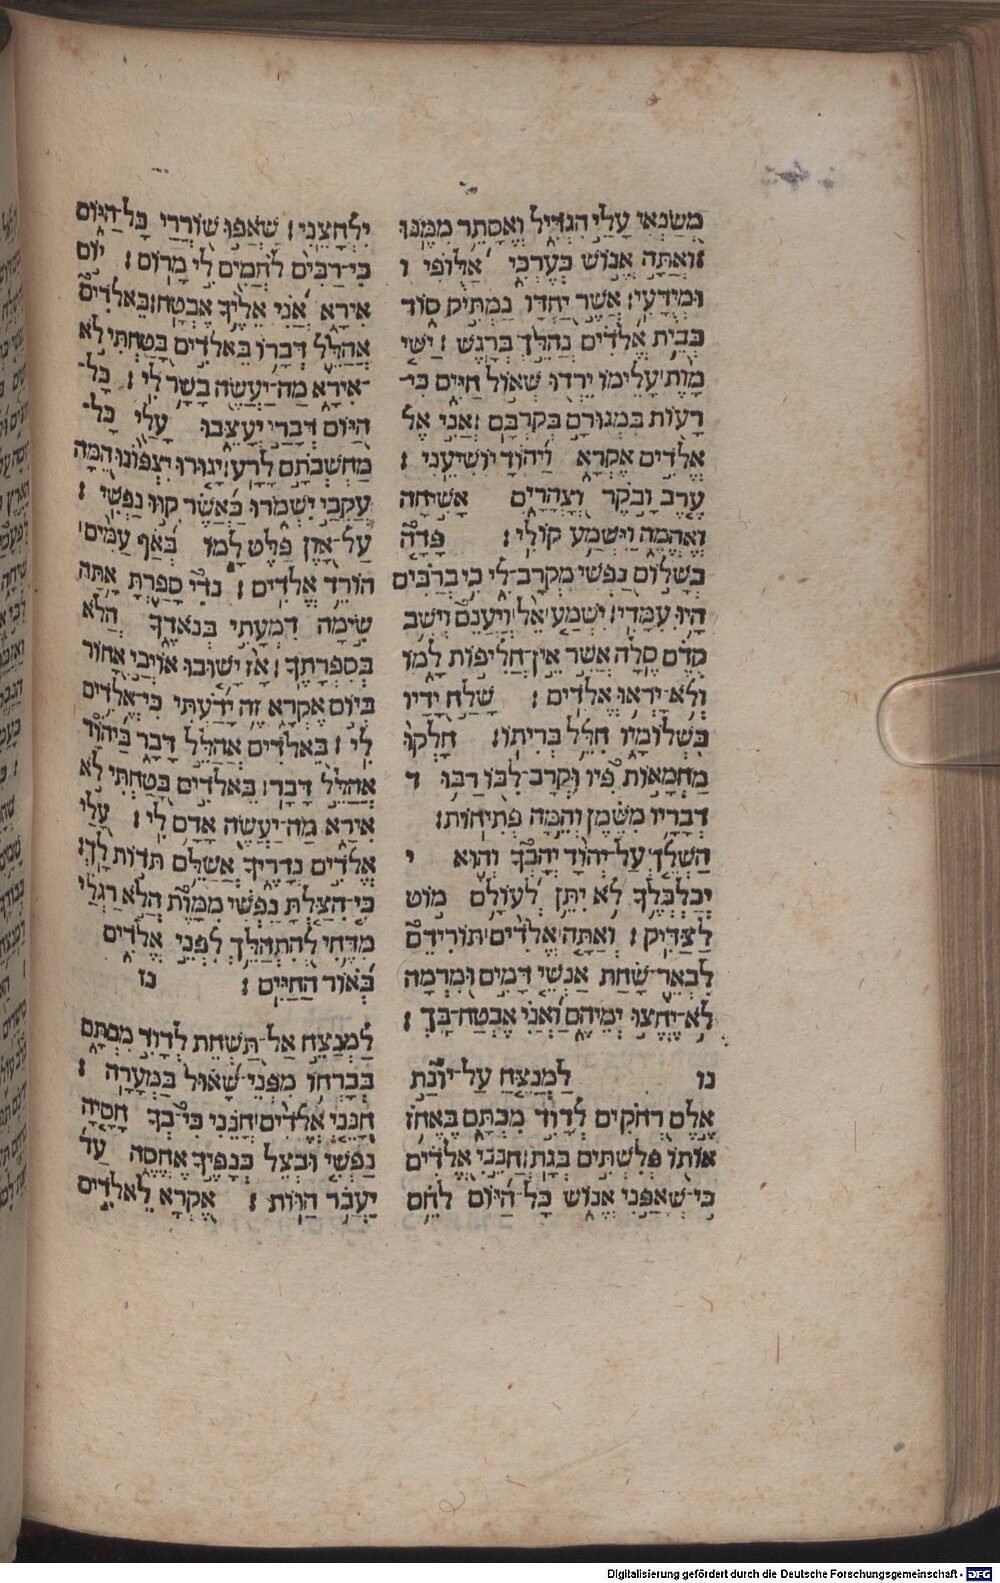 מְשַׂנְאִי עָלַי הִגְדִּיל וְאֶסָּתֵר מִמֶּנּוּ
וְאַתָּה אֱנוֹשׁ כְּעֶרְכִּי אַלּוּפִי ו
וּמְיֻדָּעִי׃ אֲשֶׁר יַחְדָּו נַמְתִּיק סוֹד
בְּבֵית אֱלֹדִים נְהַלֵּךְ בְּרָגֶשׁ׃ יַשִּׁי
מָוֶת עָלֵימוֹ יֵרְדוּ שְׁאוֹל חַיִּים כִּי־
רָעוֹת בִּמְגוּרָם בְּקִרְבָּם׃ אֲנִי אֶל
אֱלֹדִים אֶקְרָא וַיהֹוָד יוֹשִׁיעֵנִי׃
עֶרֶב וָבֹקֶר וְצָהֳרַיִם אָשִׂיחָה
וְאֶהֱמֶה וַיִּשְׁמַע קוֹלִי׃ פָּדָה
בְשָׁלוֹם נַפְשִׁי מִקְּרָב־לִי כִּי בְרַבִּים
הָיוּ עִמָּדִי׃ יִשְׁמַע אֵל וְיַעֲנֵם וְיֹשֵׁב
קֶדֶם סֶלָה אֲשֶׁר אֵין חֲלִיפוֹת לָמוֹ
וְלֹא־יָרְאוּ אֱלֹדִים׃ שָׁלַח יָדָיו
בִּשְׁלוֹמָיו חִלֵּל בְּרִיתוֹ׃ חָלְקוּ
מַחְמָאוֹת פִּיו וּקְרָב־לִבּוֹ רַבּוּ ד
דְבָרָיו מִשֶּׁמֶן וְהֵמָּה פְתִיחוֹת׃
הַשְׁלֵךְ עַל־יְהֹוָד יְהָבְךָ וְהוּא י
יְכַלְכְּלֶךָ לֹא יִתֵּן לְעוֹלָם מוֹט
לַצַּדִּיק׃ וְאַתָּה אֱלֹדִים תּוֹרִידֵם
לִבְאֵר שַׁחַת אַנְשֵׁי דָמִים וּמִרְמָה
לֹא־יֶחֱצוּ יְמֵיהֶם וַאֲנִי אֶבְטַח־בָּךְ׃
נו לַמְנַצֵּחַ עַל־יוֹנַת
אֵלֶם רְחֹקִים לְדָוִד מִכְתָּם בֶּאֱחֹז
אוֹתוֹ פְלִשְׁתִּים בְּגַת׃ חָנֵּנִי אֱלֹדִים
כִּי־שְׁאָפַנִי אֱנוֹשׁ כָּל־הַיּוֹם לֹחֵם
יִלְחָצֵנִי׃ שָׁאֲפוּ שׁוֹרְרַי כָּל־הַיּוֹם
כִּי־רַבִּים לֹחֲמִים לִי מָרוֹם׃ יוֹם
אִירָא אֲנִי אֵלֶיךָ אֶבְטָח׃ בֵּאלֹדִים
אֲהַלֵּל דְּבָרוֹ בֵּאלֹדִים בָּטַחְתִּי לֹא
־אִירָא מַה־יַּעֲשֶׂה בָשָׂר לִי׃ כָּל־
הַיּוֹם דְּבָרַי יְעַצֵּבוּ עָלַי כָּל־
מַחְשְׁבֹתָם לָרָע׃ יָגוּרוּ יִצְפּוֹנוּ הֵמָּה
עֲקֵבַי יִשְׁמֹרוּ כַּאֲשֶׁר קִוּוּ נַפְשִׁי׃
עַל־אָוֶן פַּלֶּט לָמוֹ בְּאַף עַמִּים
הוֹרֵד אֱלֹדִים׃ נֹדִי סָפַרְתָּ אָתָּה
שִׂימָה דִמְעָתִי בְנֹאדֶךָ הֲלֹא
בְּסִפְרָתֶךָ׃ אָז יָשׁוּבוּ אוֹיְבַי אָחוֹר
בְּיוֹם אֶקְרָא זֶה יָדַעְתִּי כִּי־אֱלֹדִים
לִי׃ בֵּאלֹדִים אֲהַלֵּל דָּבָר בַּיהֹוָד
אֲהַלֵּל דָּבָר׃ בֵּאלֹדִים בָּטַחְתִּי לֹא
אִירָא מַה־יַּעֲשֶׂה אָדָם לִי׃ עָלַי
אֱלֹדִים נְדָרֶיךָ אֲשַׁלֵּם תּוֹדוֹת לָךְ׃
כִּי־הִצַּלְתָּ נַפְשִׁי מִמָּוֶת הֲלֹא רַגְלַי
מִדֶּחִי לְהִתְהַלֵּךְ לִפְנֵי אֱלֹדִים
בְּאוֹר הַחַיִּים׃ נז
לַמְנַצֵּחַ אַל־תַּשְׁחֵת לְדָוִד מִכְתָּם
בְּבָרְחוֹ מִפְּנֵי־שָׁאוּל בַּמְּעָרָה׃
חָנֵּנִי אֱלֹדִים חָנֵּנִי כִּי־בְךָ חָסָיָה
נַפְשִׁי וּבְצֵל כְּנָפֶיךָ אֶחְסֶה עַד
יַעֲבֹר הַוּוֹת׃ אֶקְרָא לֵאלֹדִים
Digitalisierung gefördert durch die Deutsche Forschungsgemeinschaft - DFG